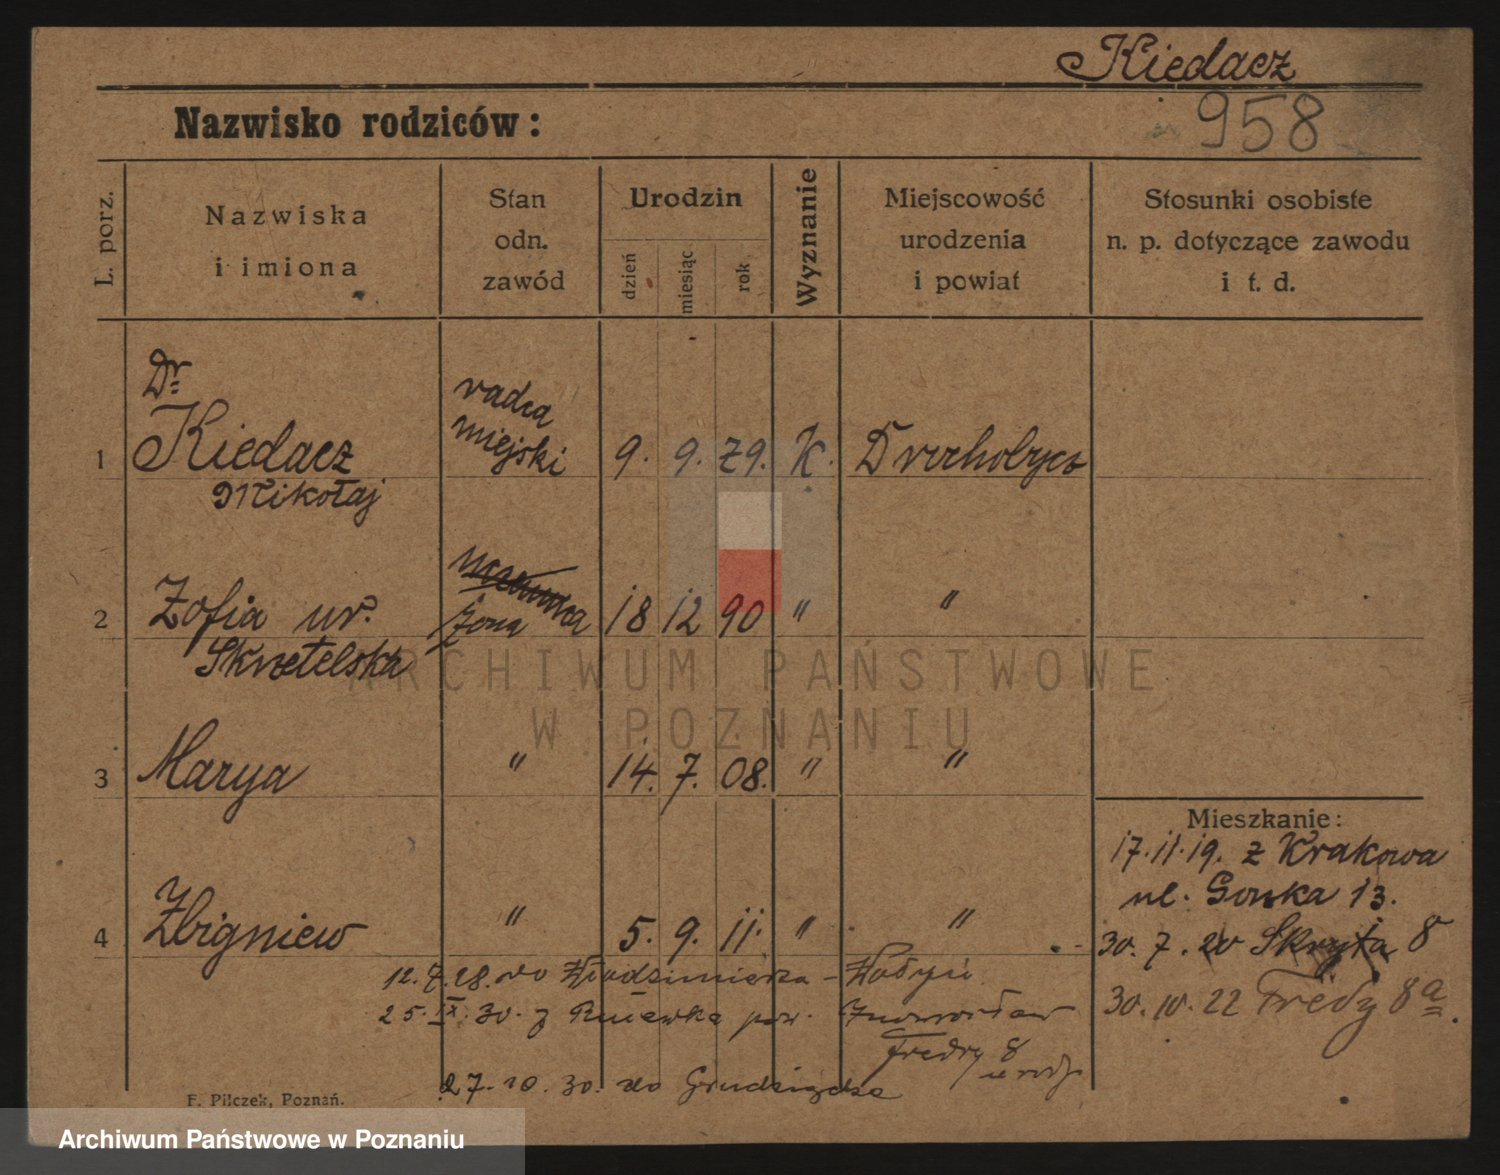 Kiedacz
Nazwisko rodziców:
958
L. porz.
Nazwiska
i imiona
Stan
odn.
zawód
Urodzin
dzień
miesiąc
rok
Wyznanie
Miejscowość
urodzenia
i powiat
Stosunki osobiste
n. p. dotyczące zawodu
i t. d.
Dr
radca
miejski
1 Kiedacz 9. 9. 79. K. Drohobycz
Mikołaj
2 Zofia ur. żona 18 12 90 " "
Skrzetelska
3 Marya " 14. 7. 08. " "
Mieszkanie:
17.11.19. z Krakowa
ul. Gorska 13.
4 Zbigniew " 5. 9. 11. " "
30. 7. 20 Skryta 8
30. 10. 22 Fredry 8a.
12.7.28. do Włodzimierza - Wołyń
25.IX.30. z pow. Inowrocław
Fredry 8
u rodz.
27.10.30. do Grudziądza
F. Pilczek, Poznań.
ARCHIWUM PAŃSTWOWE
W POZNANIU
Archiwum Państwowe w Poznaniu